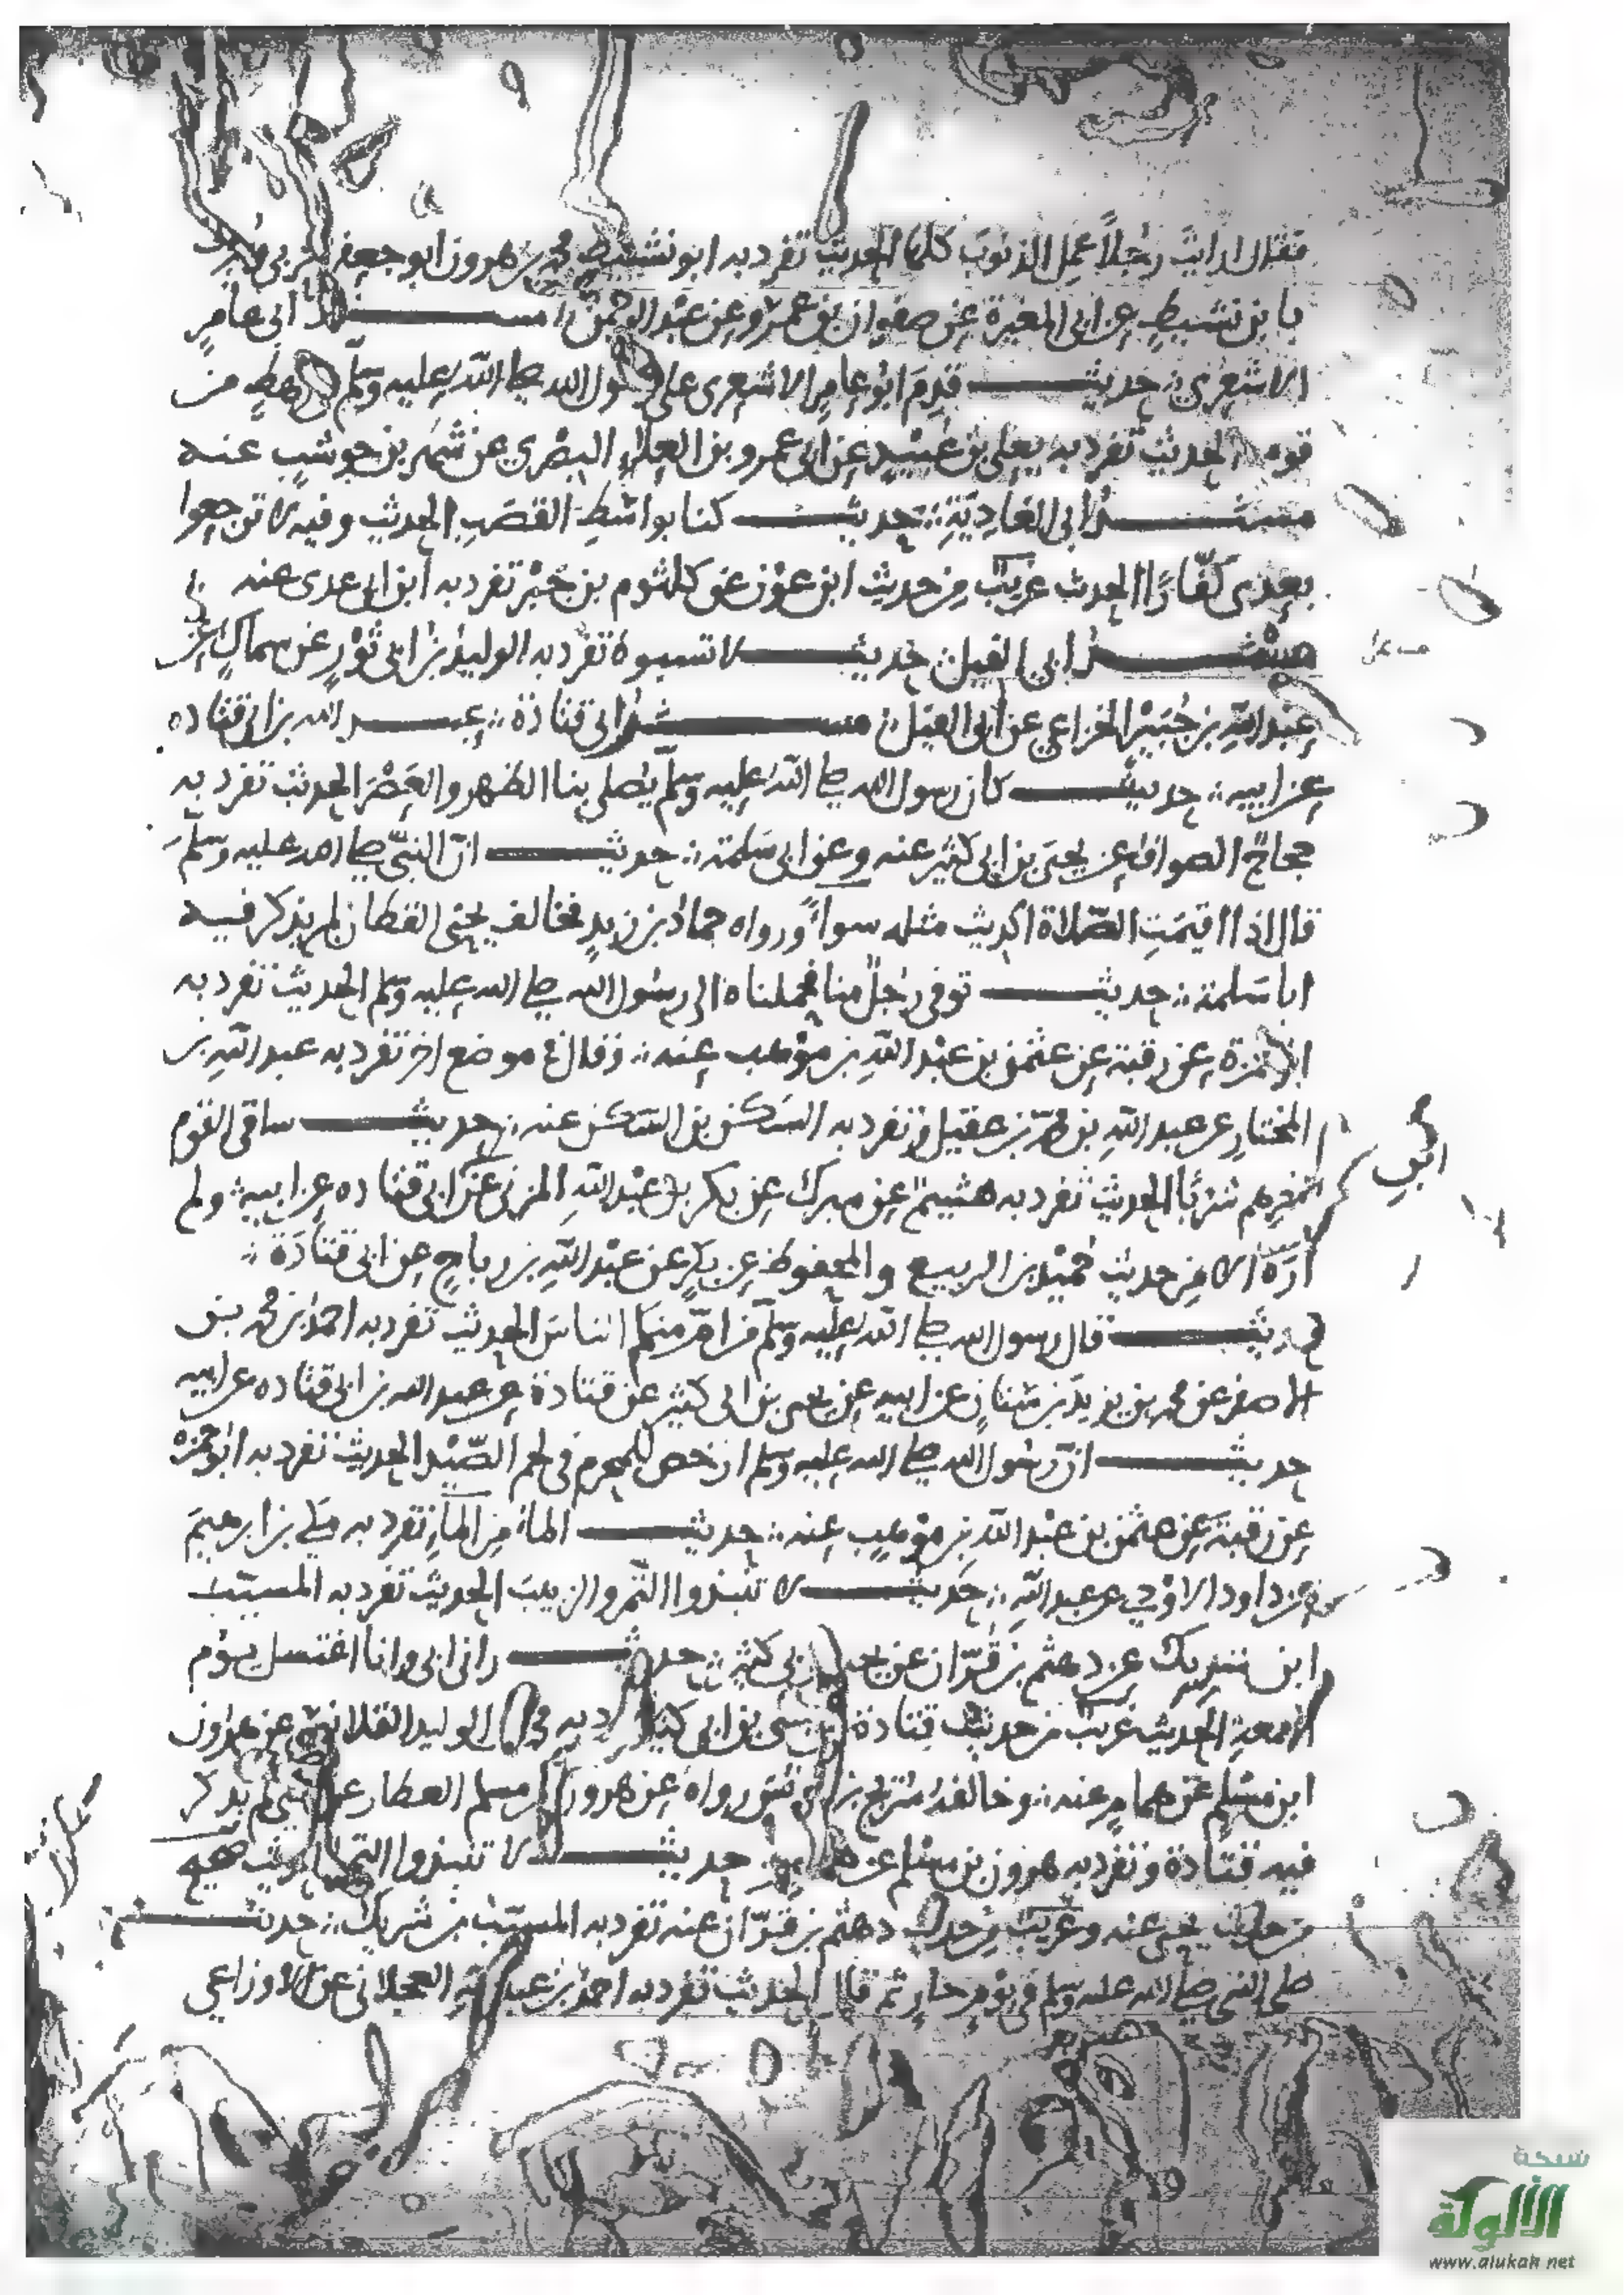 فقال ارايت رجلاً عمل الذنوب كلها الحديث تفرد به ابو نشيط محمد بن هرون ابو جعفر
با بن نشيط عن ابى المغيرة عن صفوان بن عمرو عن عبد الرحمن مســند ابى عامر
الاشعرى حديث قدم ابو عامر الاشعرى على رسول الله صلى الله عليه وسلم رهط من
قومه الحديث تفرد به يعلى بن عبيد عن ابى عمرو بن العلاء البصرى عن شهر بن حوشب عنه
مسند ابى الغادية حديث كنا بواسط القصب الحديث وفيه لا ترجعوا
بعدى كفارًا الحديث غريب من حديث ابن عون عن كلثوم بن جبر تفرد به ابن ابى عدى عنه
مسند ابى الفيل حديث لا تسبوه تفرد به الوليد بن ابى ثور عن سماك عن
عبد الله بن جبير الخزاعى عن ابى الفيل مسند ابى قتادة عبد الله بن ابى قتاده
عن ابيه حديث كان رسول الله صلى الله عليه وسلم يصلى بنا الظهر والعصر الحديث تفرد به
حجاج الصواف عن يحيى بن ابى كثير عنه وعن ابى سلمة حديث ان النبى صلى الله عليه وسلم
قال اذا اقيمت الصلاة الحديث مثله سواً ورواه حماد بن زيد فخالف يحيى القطان لم يذكر فيه
ابا سلمة حديث توفى رجل منا فحملناه الى رسول الله صلى الله عليه وسلم الحديث تفرد به
ابو حمزة عن رقبة عن عثمن بن عبد الله بن موهب عنه وقال فى موضع اخر تفرد به عبد الله بن
المختار عن عبد الله بن محمد بن عقيل وتفرد به السكن بن السكن عنه حديث ساقى القوم
اخرهم شربًا الحديث تفرد به هشيم عن مبرك عن بكر بن عبد الله المزنى عن ابن ابى قتاده عن ابيه ولم
أره الا من حديث حميد بن الربيع والمحفوظ عن بكر عن عبد الله بن رباح عن ابى قتادة
ابن
حديث قال رسول الله صلى الله عليه وسلم من ام منكم الناس الحديث تفرد به احمد بن محمد بن
الاصفر عن محمد بن يزيد بن سنان عن ابيه عن يحيى بن ابى كثير عن قتادة عن عبد الله بن ابى قتاده عن ابيه
حديث ان رسول الله صلى الله عليه وسلم ارخص للمحرم فى لحم الصيد الحديث تفرد به ابو حمزة
عن رقبة عن عثمن بن عبد الله بن موهب عنه حديث الماء من الماء تفرد به مكى بن ابرهيم
عن داود الاودى عن عبد الله حديث لا تنبذوا التمر والزبيب الحديث تفرد به المسيب
ابن شريك عن دهثم بن قران عن يحيى بن ابى كثير حديث رانى ابى وانا اغتسل يوم
الجمعة الحديث غريب من حديث قتادة عن يحيى بن ابى كثير تفرد به محمد بن الوليد القلانسى عن هارون
ابن مسلم عن همام عنه وخالفه سريج بن يونس رواه عن هرون بن مسلم العطار عن يحيى لم يذكر
فيه قتادة وتفرد به هرون بن مسلم عن همام حديث لا تنبذوا التمر الحديث صحيح
من حديث يحيى عنه وغريب من حديث دهثم بن قران عنه تفرد به المسيب بن شريك حديث
صلى النبى صلى الله عليه وسلم فى يوم حار ثم قال الحديث تفرد به احمد بن عبد الله العجلانى عن الاوزاعى
شبكة
الألوكة
www.alukah.net